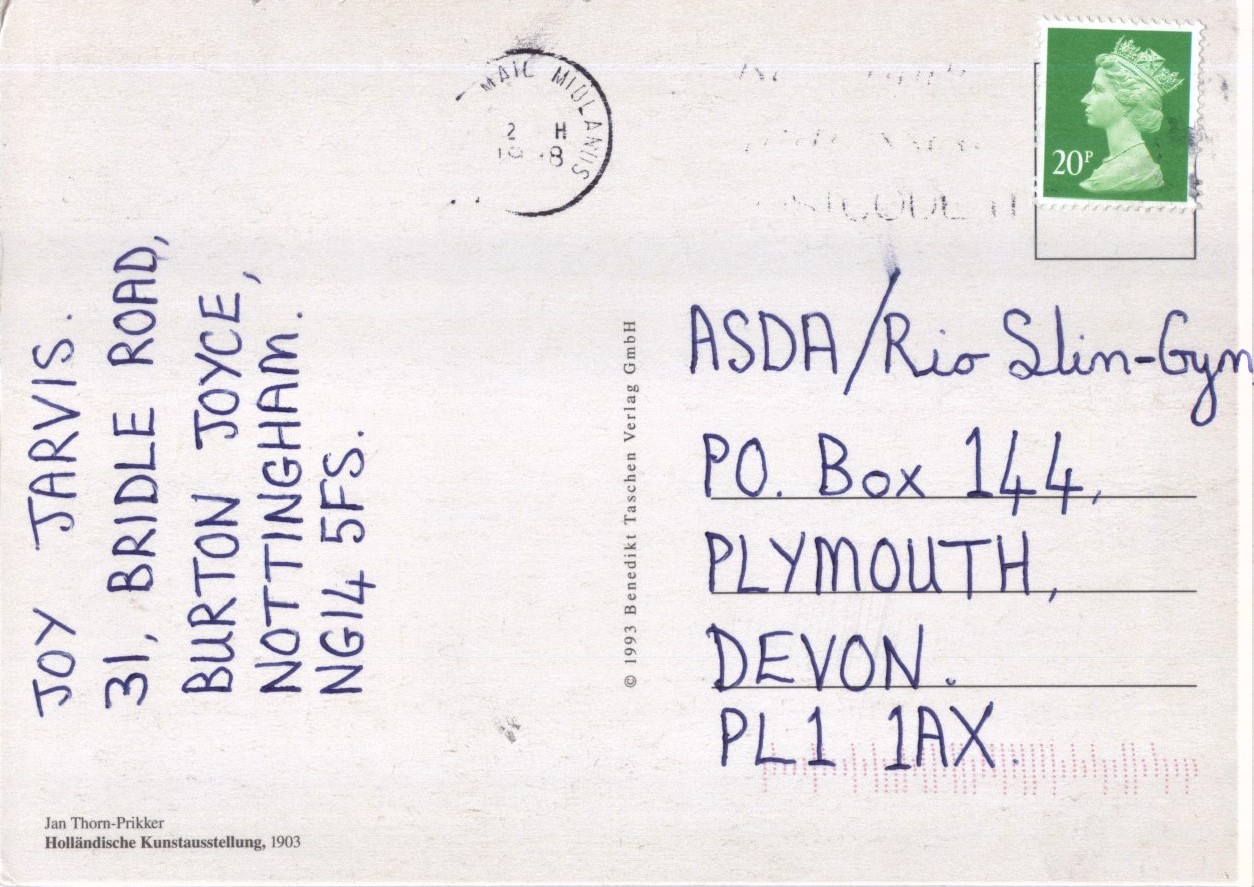 MAIL MIDLANDS
2 H
20P
JOY JARVIS.
31, BRIDLE ROAD,
BURTON JOYCE,
NOTTINGHAM.
NG14 5FS.
© 1993 Benedikt Taschen Verlag GmbH
ASDA/Rio Slim-Gym
PO. Box 144,
PLYMOUTH,
DEVON.
PL1 1AX.
Jan Thorn-Prikker
Holländische Kunstausstellung, 1903